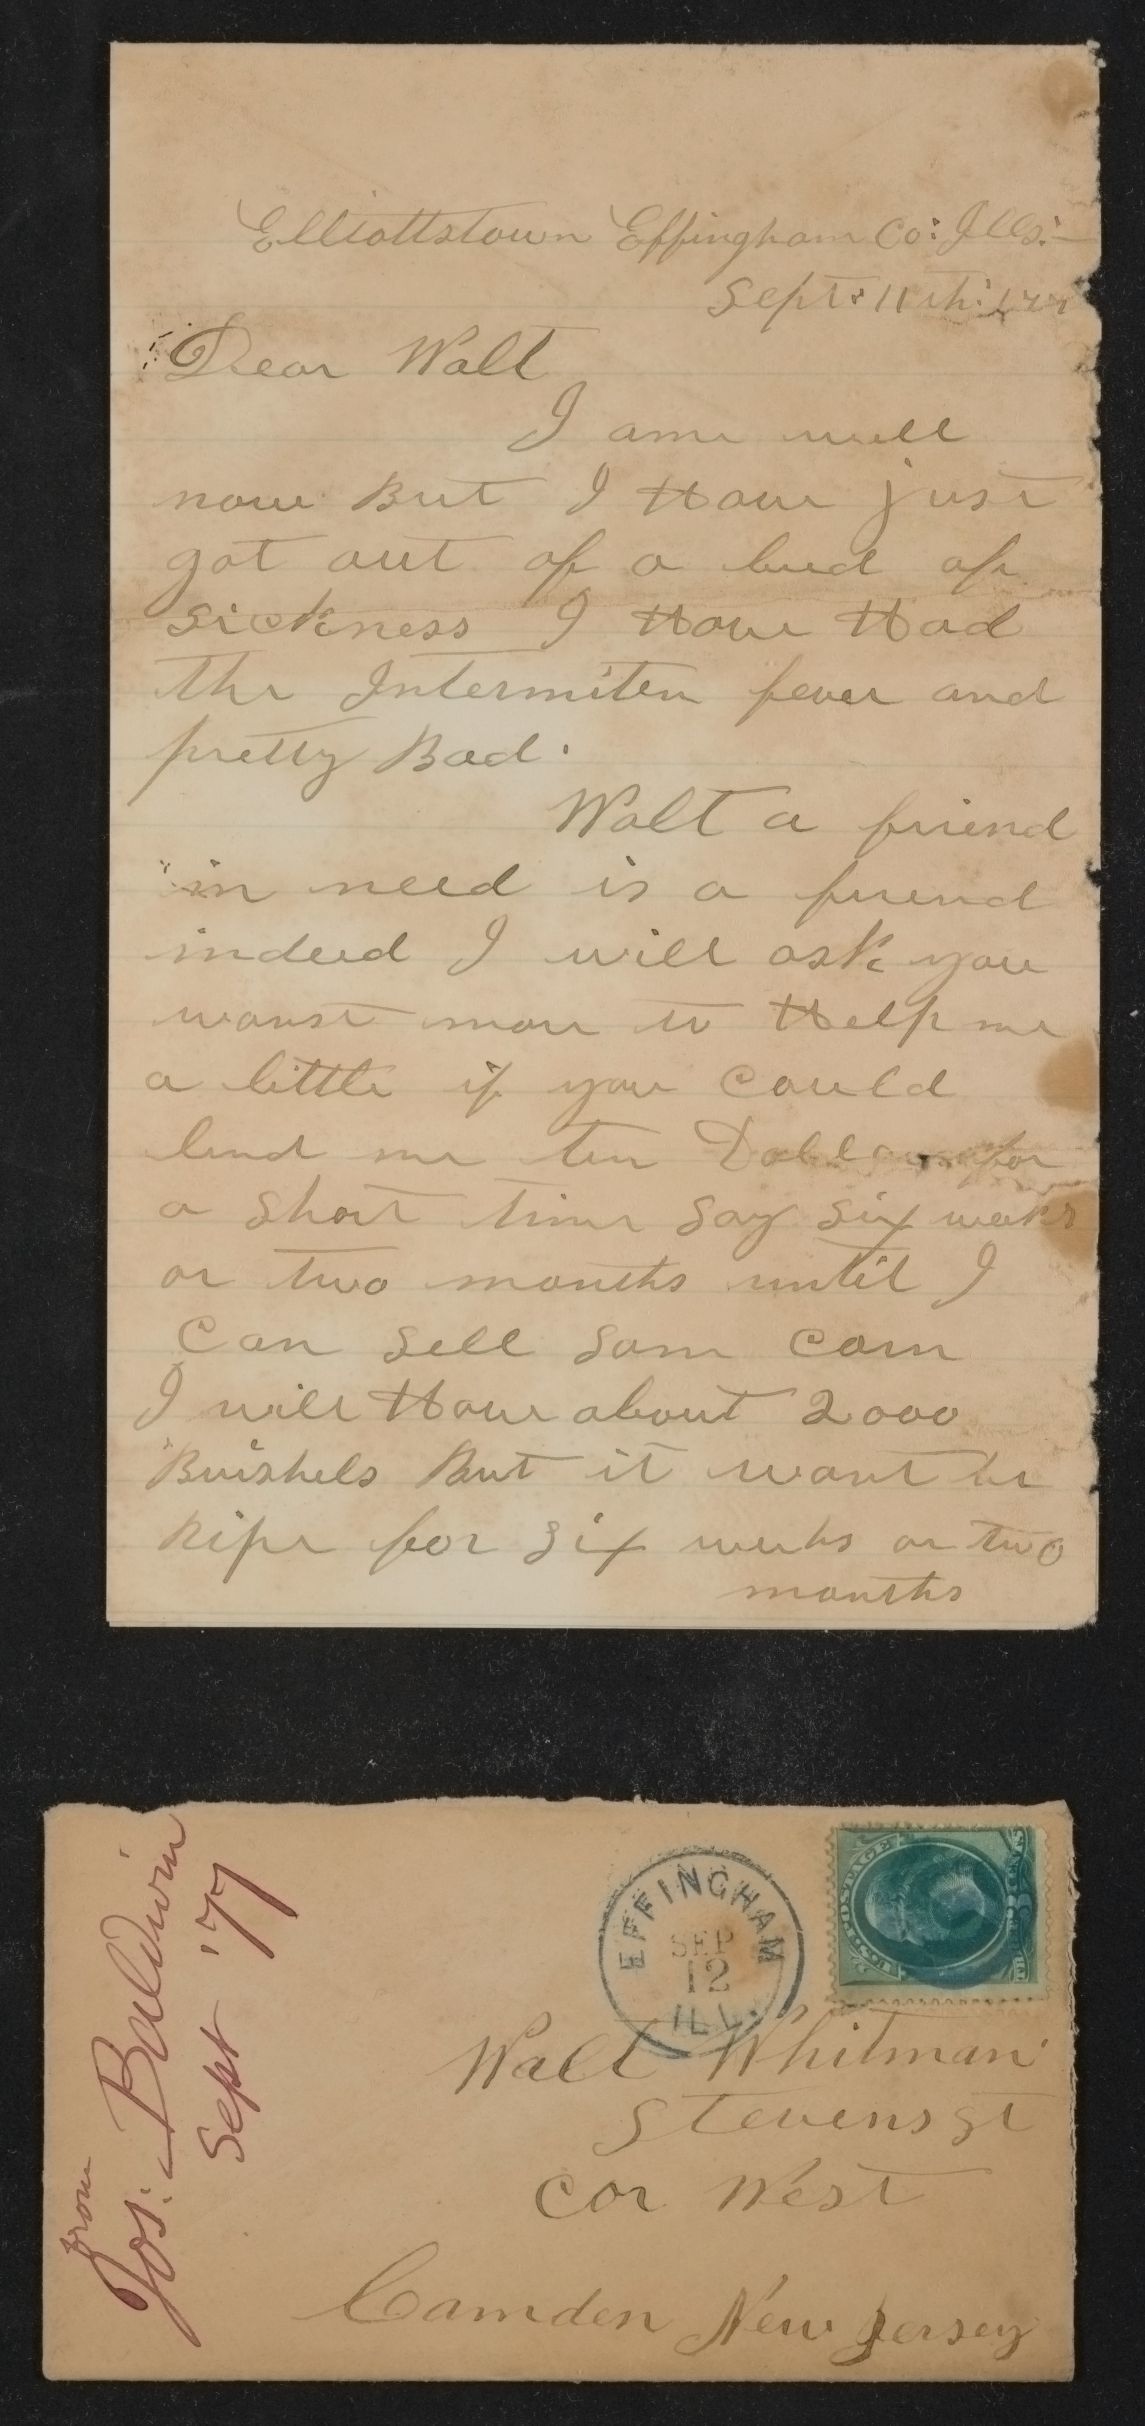 Elliottstown Effingham Co: Ills:
Sept: 11th: 177
Dear Walt
I am well
now But I Have just
got out of a bed of
sickness I Have Had
the Intermiten fever and
pretty Bad.
Walt a friend
in need is a friend
indeed I will ask you
wonst more to Help me
a little if you Could
lend me ten Dollars for
a short time say six weeks
or two months until I
Can sell som corn
I will Have about 2000
Buishels But it wont be
Ripe for six weeks or two
months
EFFINGHAM
SEP
12
ILL.
U.S. POSTAGE
THREE 3 CENTS
Walt Whitman
Stevens st
cor West
Camden New Jersey
from
Jos: Baldwin
Sept '77